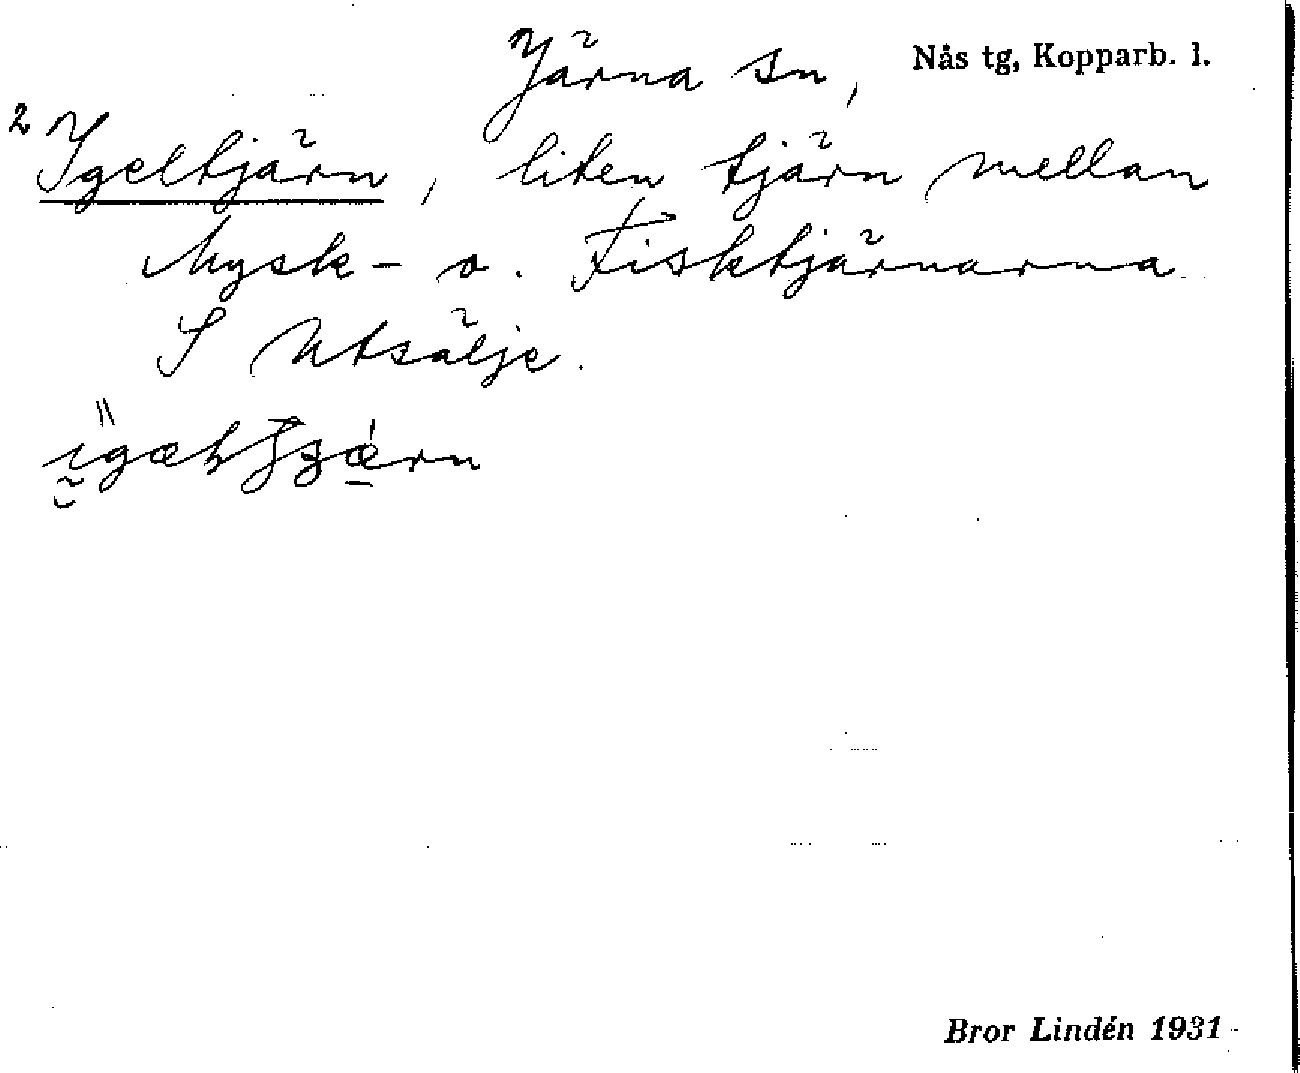 Järna sn, Nås tg, Kopparb. l.
2 Igeltjärn, liten tjärn mellan
Mysk- o. Fisktjärnarna
S Utsälje.
Bror Lindén 1931